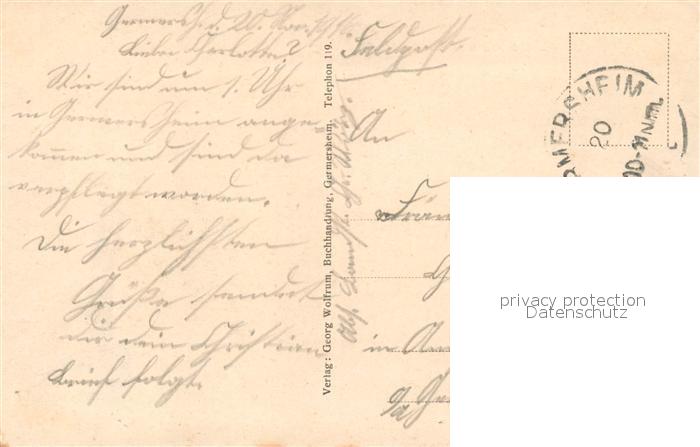 Germersh. d. 20. Nov.
Lieber Charlotte?
Wir sind um 1. Uhr
in Germersheim ange-
kommen und sind da
verpflegt worden.
Die herzlichsten
Grüße sendet
dir dein Christian
Brief folgt.
Verlag: Georg Wolfrum, Buchhandlung, Germersheim. Telephon 119.
Feldpost.
An
Fräu
in
GERMERSHEIM
20
privacy protection
Datenschutz